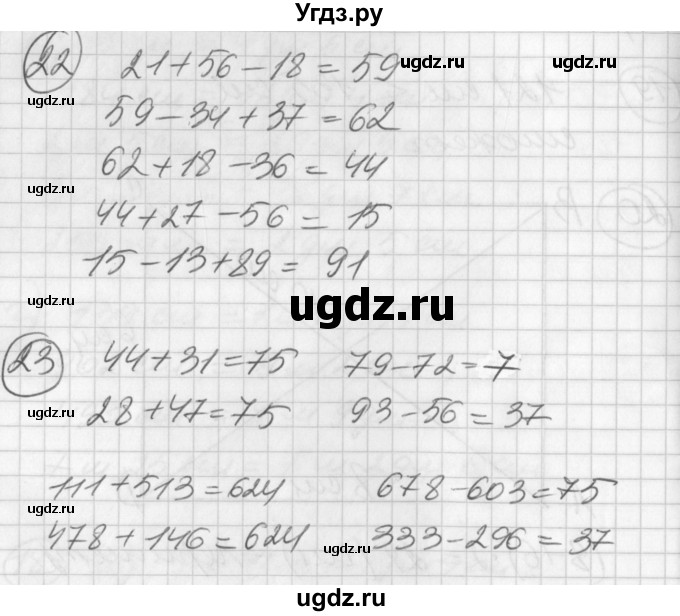 Угдз.ру
22 21+56-18=59
59-34+37=62
62+18-36=44
44+27-56=15
15-13+89=91
23 44+31=75 79-72=7
28+47=75 93-56=37
111+513=624 678-603=75
478+146=624 333-296=37
ugdz.ru
ugdz.ru
ugdz.ru
ugdz.ru
ugdz.ru
ugdz.ru
ugdz.ru
ugdz.ru
ugdz.ru
ugdz.ru
ugdz.ru
ugdz.ru